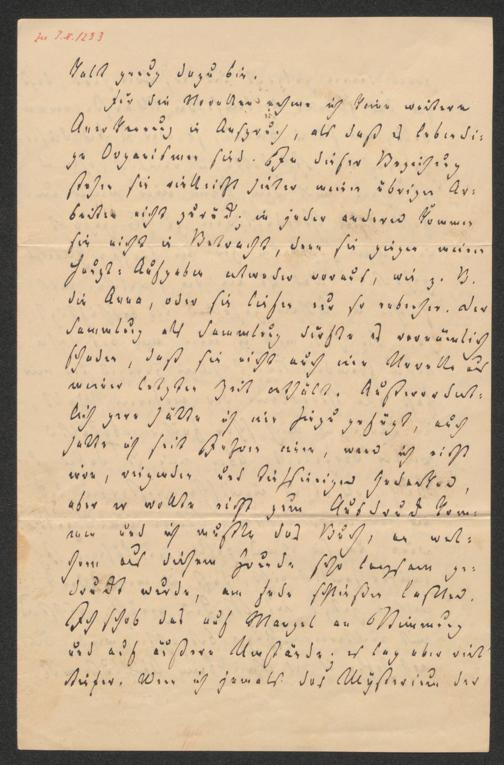 Talt genug dazu bin.
Für die Novellen nehme ich keine weitere
Anerkennung in Anspruch, als daß es lebendi-
ge Organismen sind. In dieser Beziehung
stehen sie vielleicht hinter meinen übrigen Ar-
beiten nicht zurück; in jeder anderen kommen
sie nicht in Betracht, denn sie gingen meinen
Haupt-Aufgaben entweder voraus, wie z. B.
die Anna, oder sie liefen nur so nebenher. Der
Sammlung als Sammlung dürfte es vornämlich
schaden, daß sie nicht auch eine Novelle aus
meiner letzten Zeit enthält. Außerordent-
lich gern hätte ich eine hinzu gefügt, auch
hatte ich seit Jahren einen, wenn ich nicht
irre, eigenen und tiefsinnigen Gedanken,
aber er wollte nicht zum Ausdruck kom-
men und ich mußte das Buch, an wel-
chem aus diesem Grunde sehr langsam ge-
druckt wurde, am Ende schließen lassen.
Ich schob das auf Mangel an Stimmung
und auf äußere Umstände; es lag aber viel
tiefer. Wenn ich jemals das Mysterium der